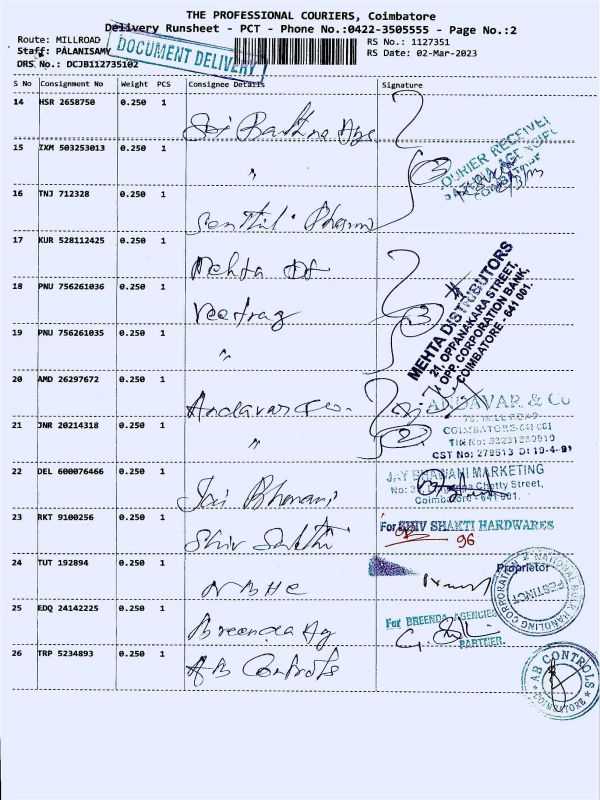 THE PROFESSIONAL COURIERS, Coimbatore
Delivery Runsheet - PCT - Phone No.:0422-3505555 - Page No.:2
Route: MILLROAD
RS No.: 1127351
Staff: PALANISAMY
RS Date: 02-Mar-2023
DRS No.: DCJB112735102
DOCUMENT DELIVERY
S No Consignment No Weight PCS Consignee Details Signature
14 HSR 2658750 0.250 1
15 IXM 503253013 0.250 1 "
COURIER RECEIVED
16 TNJ 712328 0.250 1 Senthil Pharma
17 KUR 528112425 0.250 1 Mehta
18 PNU 756261036 0.250 1 Veetrag
3
MEHTA DISTRIBUTORS
21, OPPANAKARA STREET,
OPP. CORPORATION BANK,
COIMBATORE - 641 001.
19 PNU 756261035 0.250 1 "
20 AMD 26297672 0.250 1 Andavar & Co.
ANDAVAR & Co
21 JNR 20214318 0.250 1 "
2
COIMBATORE-641 001
22 DEL 600076466 0.250 1 Jai Bhavani
JAY BHAVANI MARKETING
Chetty Street,
Coimbatore - 641 001.
23 RKT 9100256 0.250 1 Shiv Sakthi
For SHIV SHAKTI HARDWARES
96
Proprietor
24 TUT 192894 0.250 1 NBHC
NATIONAL BULK HANDLING CORPORATION
25 EDQ 24142225 0.250 1 Breenda Ag
For BREENDA AGENCIES
PARTNER.
26 TRP 5234893 0.250 1 AB Controls
AB CONTROLS
COIMBATORE